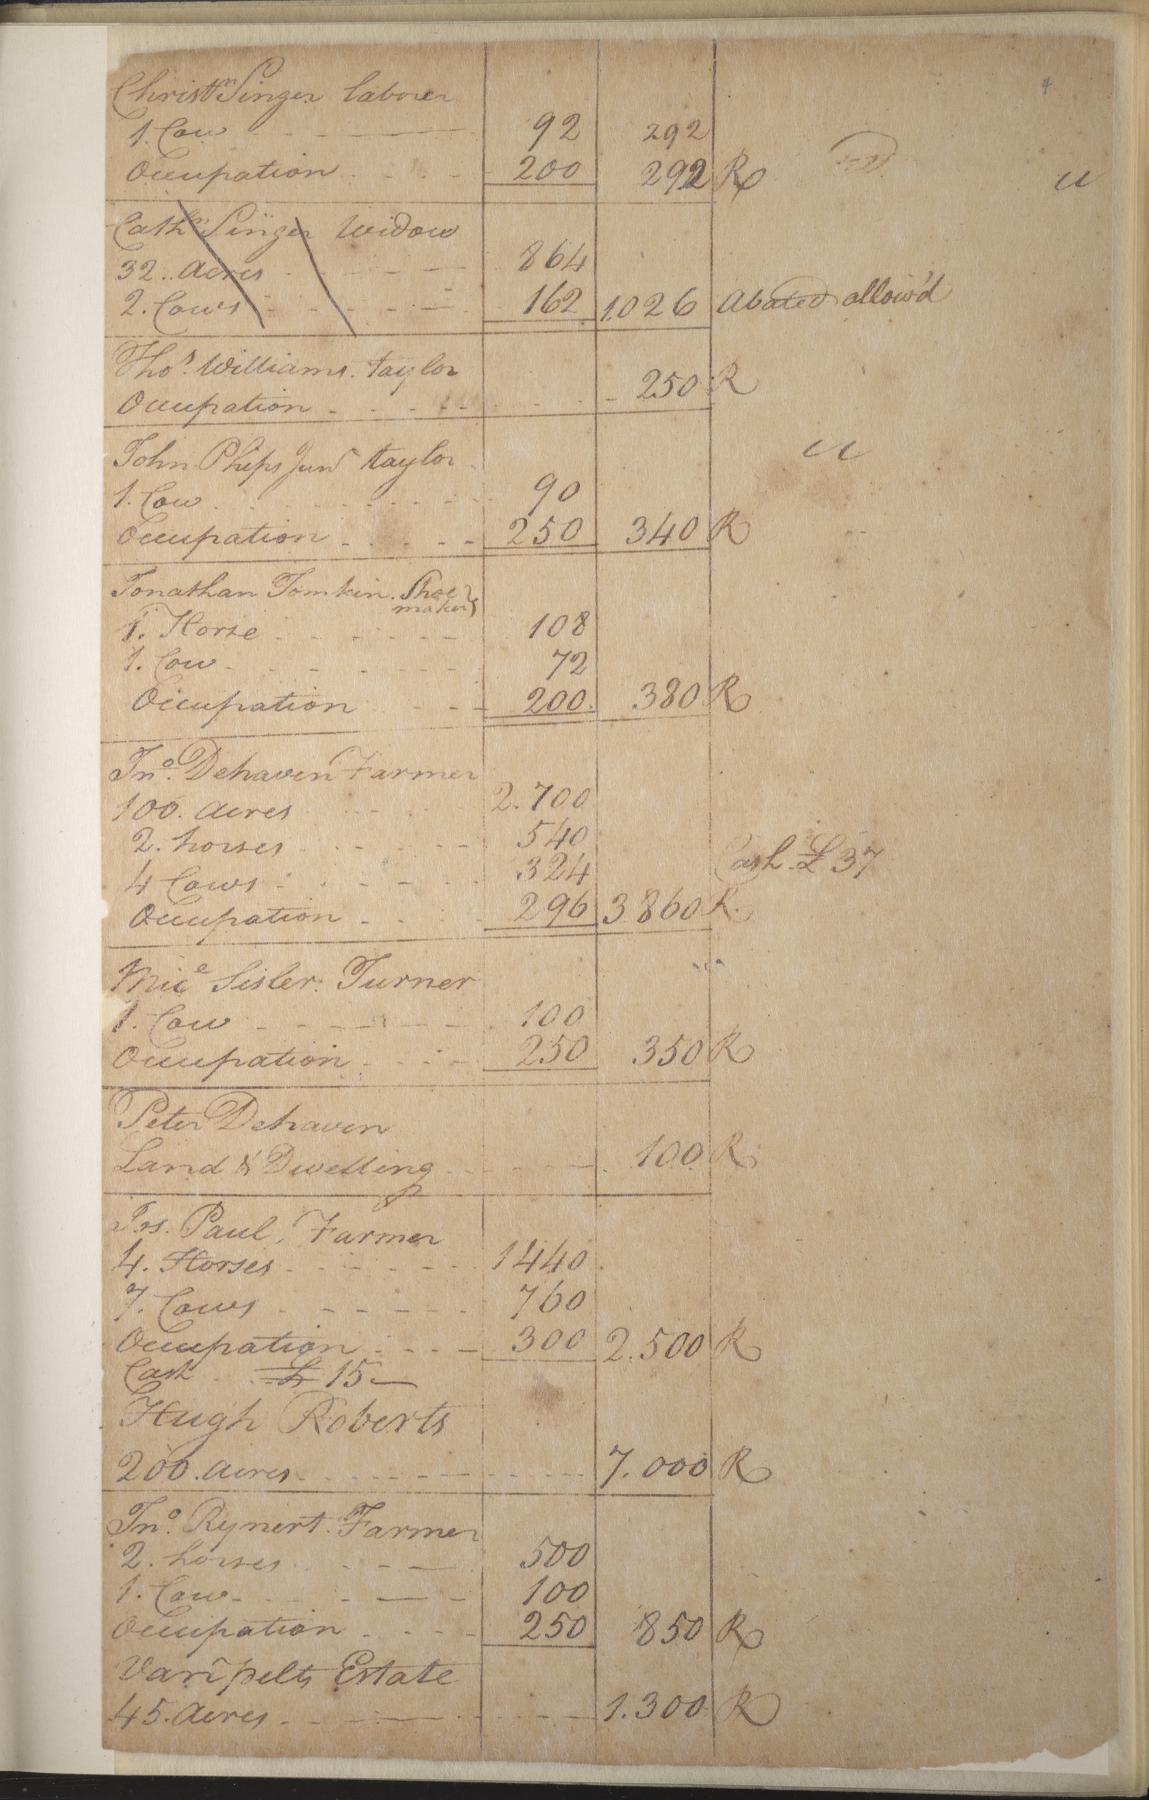 4
Christn Singer laborer
1. Cow 92 292
Occupation 200 292 R
u
Cathn Singer Widow
32.. Acres 864
2. Cows 162 1.026 Abated allow'd
Thos. Williams. taylor
Occupation 250 R
u
John Phips Junr taylor
1. Cow 90
Occupation 250 340 R
Jonathan Tomkin. Shoe
maker
1. Horse 108
1. Cow 72
Occupation 200. 380. R
Jno. Dehaven Farmer
100. Acres 2.700
2. horses 540
Cash £ 37
4 Cows 324
Occupation 296 3860 R.
Mice Sisler. Turner
1. Cow 100
Occupation 250 350 R
Peter Dehaven
Land & Dwelling 100 R
Jos. Paul, Farmer
4. Horses 1440
7. Cows 760
Occupation 300 2.500 R
Cash £ 15
Hugh Roberts
200. Acres 7.000 R
Jno. Rynert. Farmer
2. horses 500
1. Cow 100
Occupation 250 850 R
Vanpelts Estate
45. Acres 1.300 R